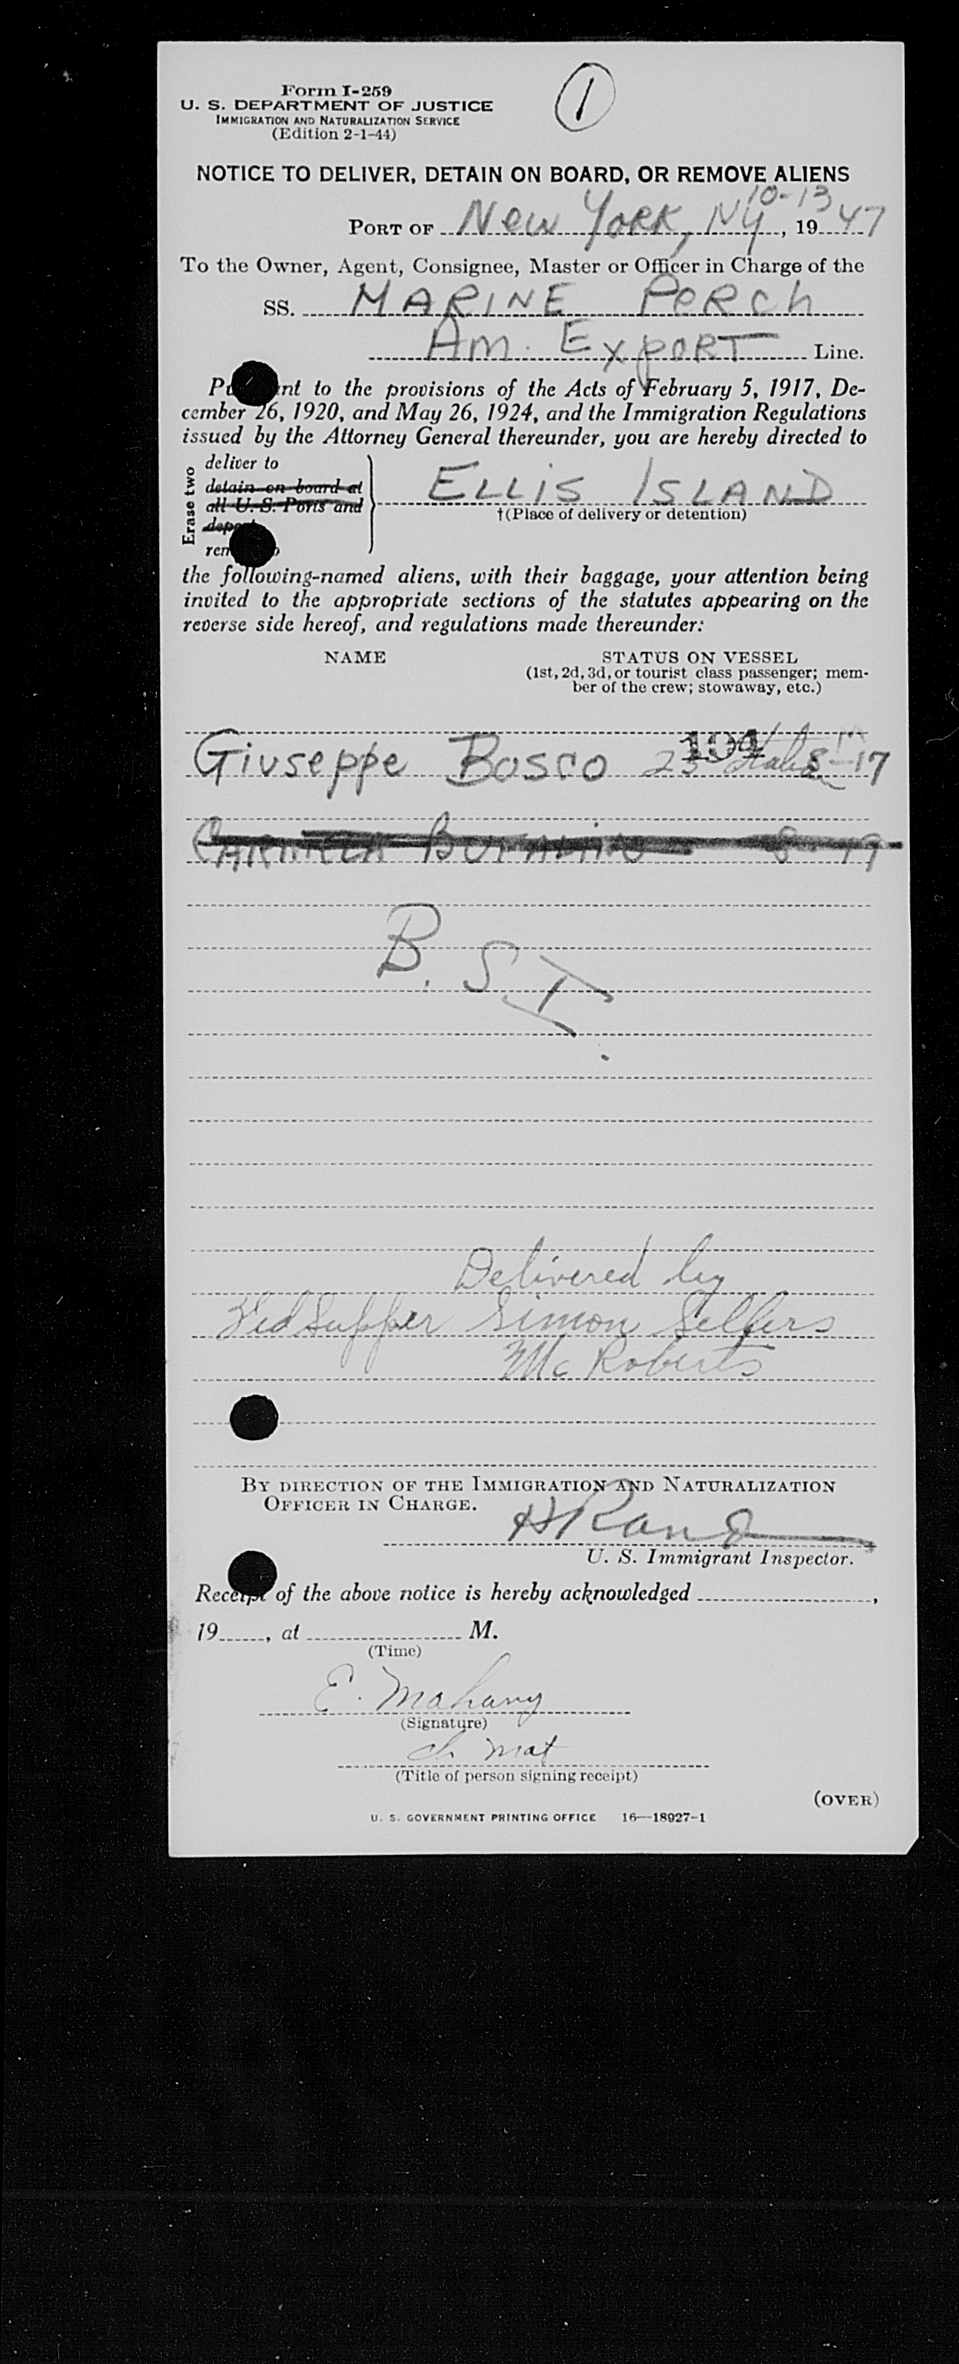 ①
Form I-259
U. S. DEPARTMENT OF JUSTICE
IMMIGRATION AND NATURALIZATION SERVICE
(Edition 2-1-44)
NOTICE TO DELIVER, DETAIN ON BOARD, OR REMOVE ALIENS
10-13
PORT OF New York, NY, 1947
To the Owner, Agent, Consignee, Master or Officer in Charge of the
SS. MARINE PERCH
Am. Export Line.
Pursuant to the provisions of the Acts of February 5, 1917, De-
cember 26, 1920, and May 26, 1924, and the Immigration Regulations
issued by the Attorney General thereunder, you are hereby directed to
Erase two
deliver to
detain on board at
all U. S. Ports and
deport
remove to
ELLIS ISLAND
†(Place of delivery or detention)
the following-named aliens, with their baggage, your attention being
invited to the appropriate sections of the statutes appearing on the
reverse side hereof, and regulations made thereunder:
NAME STATUS ON VESSEL
(1st, 2d, 3d, or tourist class passenger; mem-
ber of the crew; stowaway, etc.)
Giuseppe Bosco 23 104 Italian 8-17
8-19
B. S. I.
Delivered by
Simon Sellers
McRoberts
BY DIRECTION OF THE IMMIGRATION AND NATURALIZATION
OFFICER IN CHARGE.
U. S. Immigrant Inspector.
Receipt of the above notice is hereby acknowledged ,
19 , at M.
(Time)
E. Mahany
(Signature)
ch mat
(Title of person signing receipt)
(OVER)
U. S. GOVERNMENT PRINTING OFFICE 16—18927-1